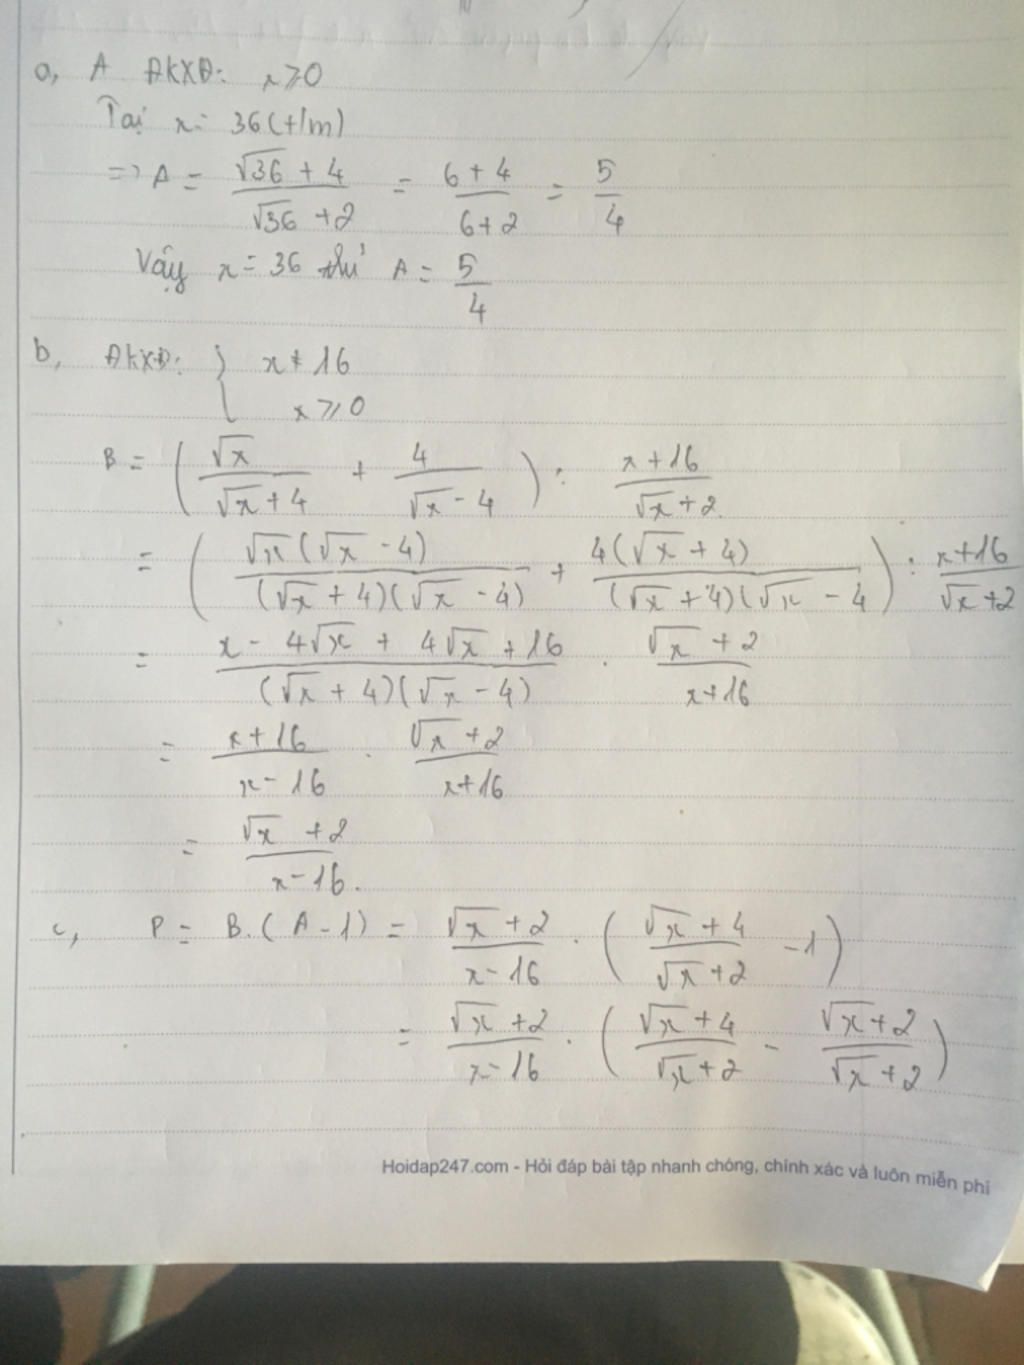 a, A ĐKXĐ: x ≥ 0
Tại x = 36 (t/m)
=> A = (√36 + 4)/(√36 + 2) = (6 + 4)/(6 + 2) = 5/4
Vậy x = 36 thì A = 5/4
b, ĐKXĐ: { x ≠ 16
x ≥ 0
B = (√x/(√x + 4) + 4/(√x - 4)) : (x + 16)/(√x + 2)
= (√x(√x - 4)/((√x + 4)(√x - 4)) + 4(√x + 4)/((√x + 4)(√x - 4)) : (x + 16)/(√x + 2)
= (x - 4√x + 4√x + 16)/((√x + 4)(√x - 4)) . (√x + 2)/(x + 16)
= (x + 16)/(x - 16) . (√x + 2)/(x + 16)
= (√x + 2)/(x - 16).
c, P = B.(A - 1) = (√x + 2)/(x - 16) . ((√x + 4)/(√x + 2) - 1)
= (√x + 2)/(x - 16) . ((√x + 4)/(√x + 2) - (√x + 2)/(√x + 2))
Hoidap247.com - Hỏi đáp bài tập nhanh chóng, chính xác và luôn miễn phí